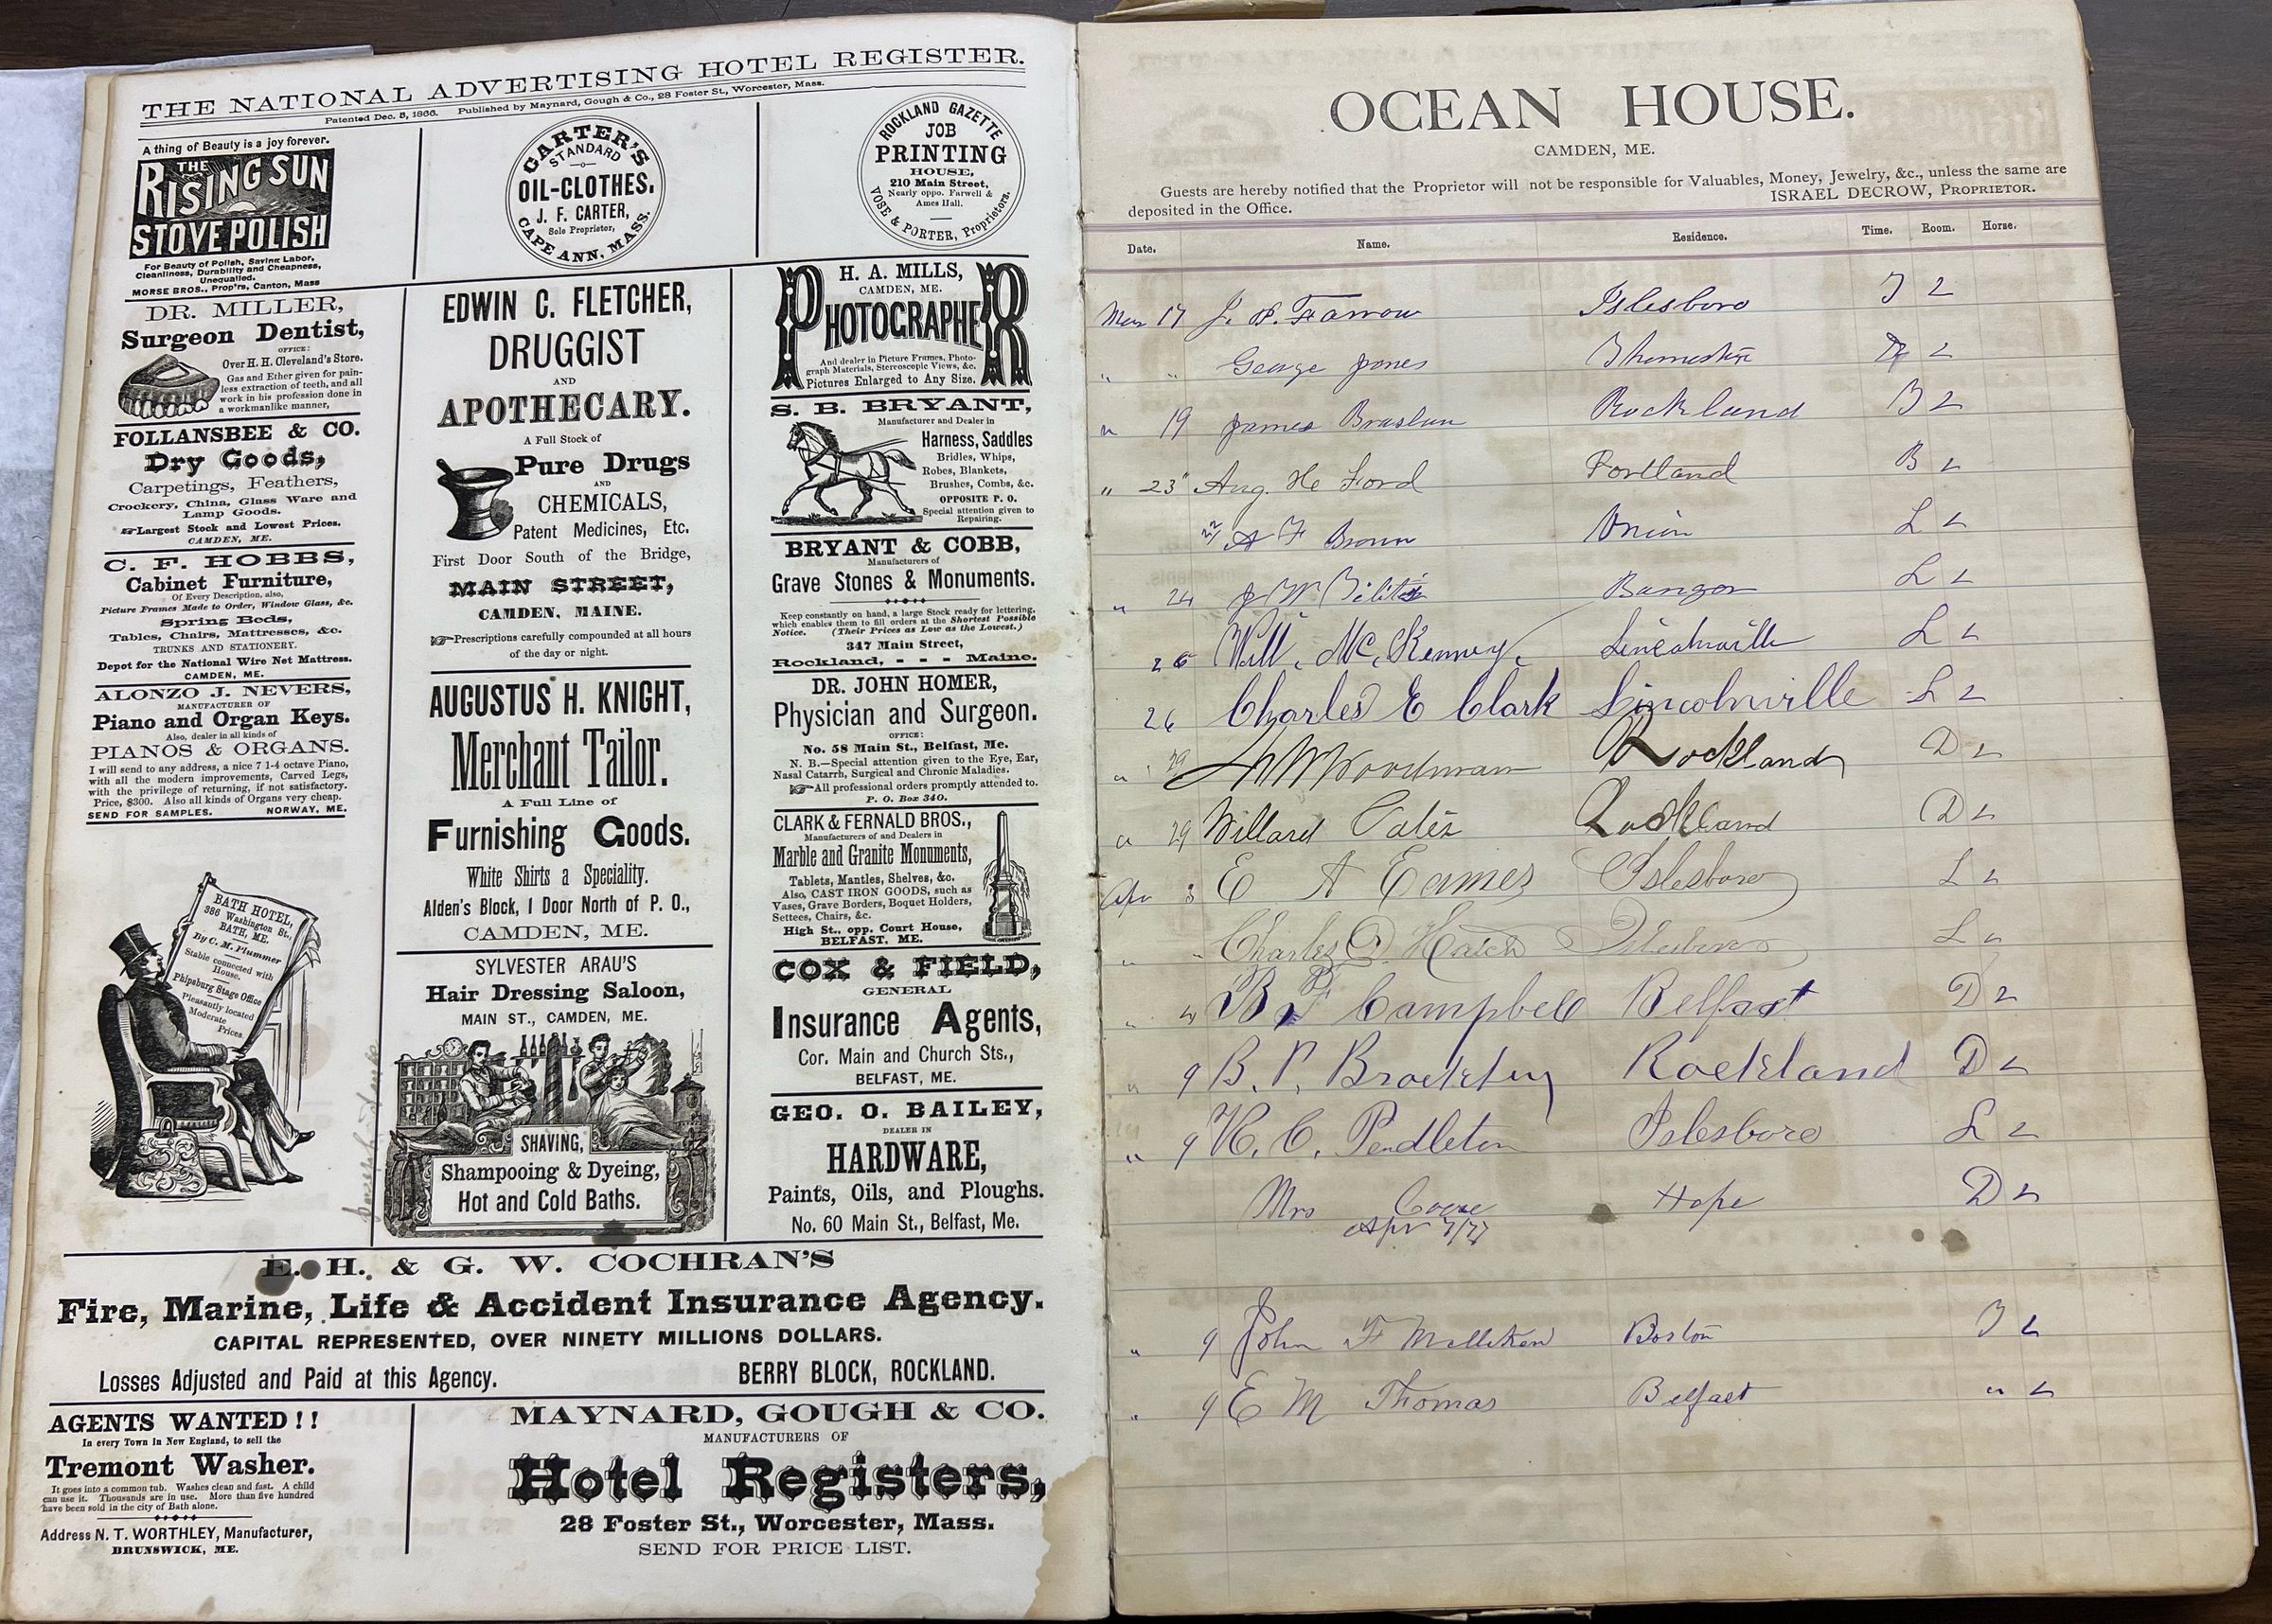 THE NATIONAL ADVERTISING HOTEL REGISTER.
Patented Dec. 5, 1866. Published by Maynard, Gough & Co., 28 Foster St., Worcester, Mass.
A thing of Beauty is a joy forever.
THE
RISING SUN
STOVE POLISH
For Beauty of Polish, Saving Labor,
Cleanliness, Durability and Cheapness,
Unequalled.
MORSE BROS., Prop'rs, Canton, Mass
CARTER'S
STANDARD
OIL-CLOTHES.
J. F. CARTER,
Sole Proprietor,
CAPE ANN, MASS.
ROCKLAND GAZETTE
JOB
PRINTING
HOUSE,
210 Main Street,
Nearly oppo. Farwell &
Ames Hall.
VOSE & PORTER, Proprietors.
DR. MILLER,
Surgeon Dentist,
OFFICE:
Over H. H. Cleveland's Store.
Gas and Ether given for pain-
less extraction of teeth, and all
work in his profession done in
a workmanlike manner,
FOLLANSBEE & CO.
Dry Goods,
Carpetings, Feathers,
Crockery, China, Glass Ware and
Lamp Goods.
☞Largest Stock and Lowest Prices.
CAMDEN, ME.
C. F. HOBBS,
Cabinet Furniture,
Of Every Description, also,
Picture Frames Made to Order, Window Glass, &c.
Spring Beds,
Tables, Chairs, Mattresses, &c.
TRUNKS AND STATIONERY.
Depot for the National Wire Net Mattress.
CAMDEN, ME.
ALONZO J. NEVERS,
MANUFACTURER OF
Piano and Organ Keys.
Also, dealer in all kinds of
PIANOS & ORGANS.
I will send to any address, a nice 7 1-4 octave Piano,
with all the modern improvements, Carved Legs,
with the privilege of returning, if not satisfactory.
Price, $300. Also all kinds of Organs very cheap.
SEND FOR SAMPLES. NORWAY, ME.
BATH HOTEL,
386 Washington St.,
BATH, ME.
By C. M. Plummer
Stable connected with
House.
Phipsburg Stage Office
Pleasantly located
Moderate
Prices
EDWIN C. FLETCHER,
DRUGGIST
AND
APOTHECARY.
A Full Stock of
Pure Drugs
AND
CHEMICALS,
Patent Medicines, Etc.
First Door South of the Bridge,
MAIN STREET,
CAMDEN, MAINE.
☞Prescriptions carefully compounded at all hours
of the day or night.
AUGUSTUS H. KNIGHT,
Merchant Tailor.
A Full Line of
Furnishing Goods.
White Shirts a Speciality.
Alden's Block, 1 Door North of P. O.,
CAMDEN, ME.
SYLVESTER ARAU'S
Hair Dressing Saloon,
MAIN ST., CAMDEN, ME.
SHAVING,
Shampooing & Dyeing,
Hot and Cold Baths.
H. A. MILLS,
CAMDEN, ME.
PHOTOGRAPHER
And dealer in Picture Frames, Photo-
graph Materials, Stereoscopic Views, &c.
Pictures Enlarged to Any Size.
S. B. BRYANT,
Manufacturer and Dealer in
Harness, Saddles
Bridles, Whips,
Robes, Blankets,
Brushes, Combs, &c.
OPPOSITE P. O.
Special attention given to
Repairing.
BRYANT & COBB,
Manufacturers of
Grave Stones & Monuments.
Keep constantly on hand, a large Stock ready for lettering,
which enables them to fill orders at the Shortest Possible
Notice. (Their Prices as Low as the Lowest.)
347 Main Street,
Rockland, - - - Maine.
DR. JOHN HOMER,
Physician and Surgeon.
OFFICE:
No. 58 Main St., Belfast, Me.
N. B.—Special attention given to the Eye, Ear,
Nasal Catarrh, Surgical and Chronic Maladies.
☞All professional orders promptly attended to.
P. O. Box 340.
CLARK & FERNALD BROS.,
Manufacturers of and Dealers in
Marble and Granite Monuments,
Tablets, Mantles, Shelves, &c.
Also, CAST IRON GOODS, such as
Vases, Grave Borders, Boquet Holders,
Settees, Chairs, &c.
High St., opp. Court House,
BELFAST, ME.
COX & FIELD,
GENERAL
Insurance Agents,
Cor. Main and Church Sts.,
BELFAST, ME.
GEO. O. BAILEY,
DEALER IN
HARDWARE,
Paints, Oils, and Ploughs.
No. 60 Main St., Belfast, Me.
E. H. & G. W. COCHRAN'S
Fire, Marine, Life & Accident Insurance Agency.
CAPITAL REPRESENTED, OVER NINETY MILLIONS DOLLARS.
Losses Adjusted and Paid at this Agency. BERRY BLOCK, ROCKLAND.
AGENTS WANTED!!
In every Town in New England, to sell the
Tremont Washer.
It goes into a common tub. Washes clean and fast. A child
can use it. Thousands are in use. More than five hundred
have been sold in the city of Bath alone.
Address N. T. WORTHLEY, Manufacturer,
BRUNSWICK, ME.
MAYNARD, GOUGH & CO.
MANUFACTURERS OF
Hotel Registers,
28 Foster St., Worcester, Mass.
SEND FOR PRICE LIST.
OCEAN HOUSE.
CAMDEN, ME.
Guests are hereby notified that the Proprietor will not be responsible for Valuables, Money, Jewelry, &c., unless the same are
deposited in the Office. ISRAEL DECROW, PROPRIETOR.
Date. Name. Residence. Time. Room. Horse.
Mar 17 J. P. Farrow Islesboro 2
" " George Jones 2
" 19 James Braslun Rockland B 2
" 23 Aug. H. Ford Portland B 2
A F Brown Union L 2
" 24 J W Bangor L 2
26 Will. McKenney. Lincolnville L 2
26 Charles E Clark Lincolnville L 2
" 29 Woodman Rockland D 2
" 29 Willard Rockland D 2
Apr 3 E A Eames Islesboro L 2
" " Charles D. Hatch Islesboro L "
" 4 B F Campbell Belfast D 2
" 9 B. P. Brackley Rockland D 2
" 9 H. C. Pendleton Islesboro L 2
Mrs Hope D 2
Apr 7/77
" 9 John F Milliken Boston 2
" 9 E M Thomas Belfast " 2